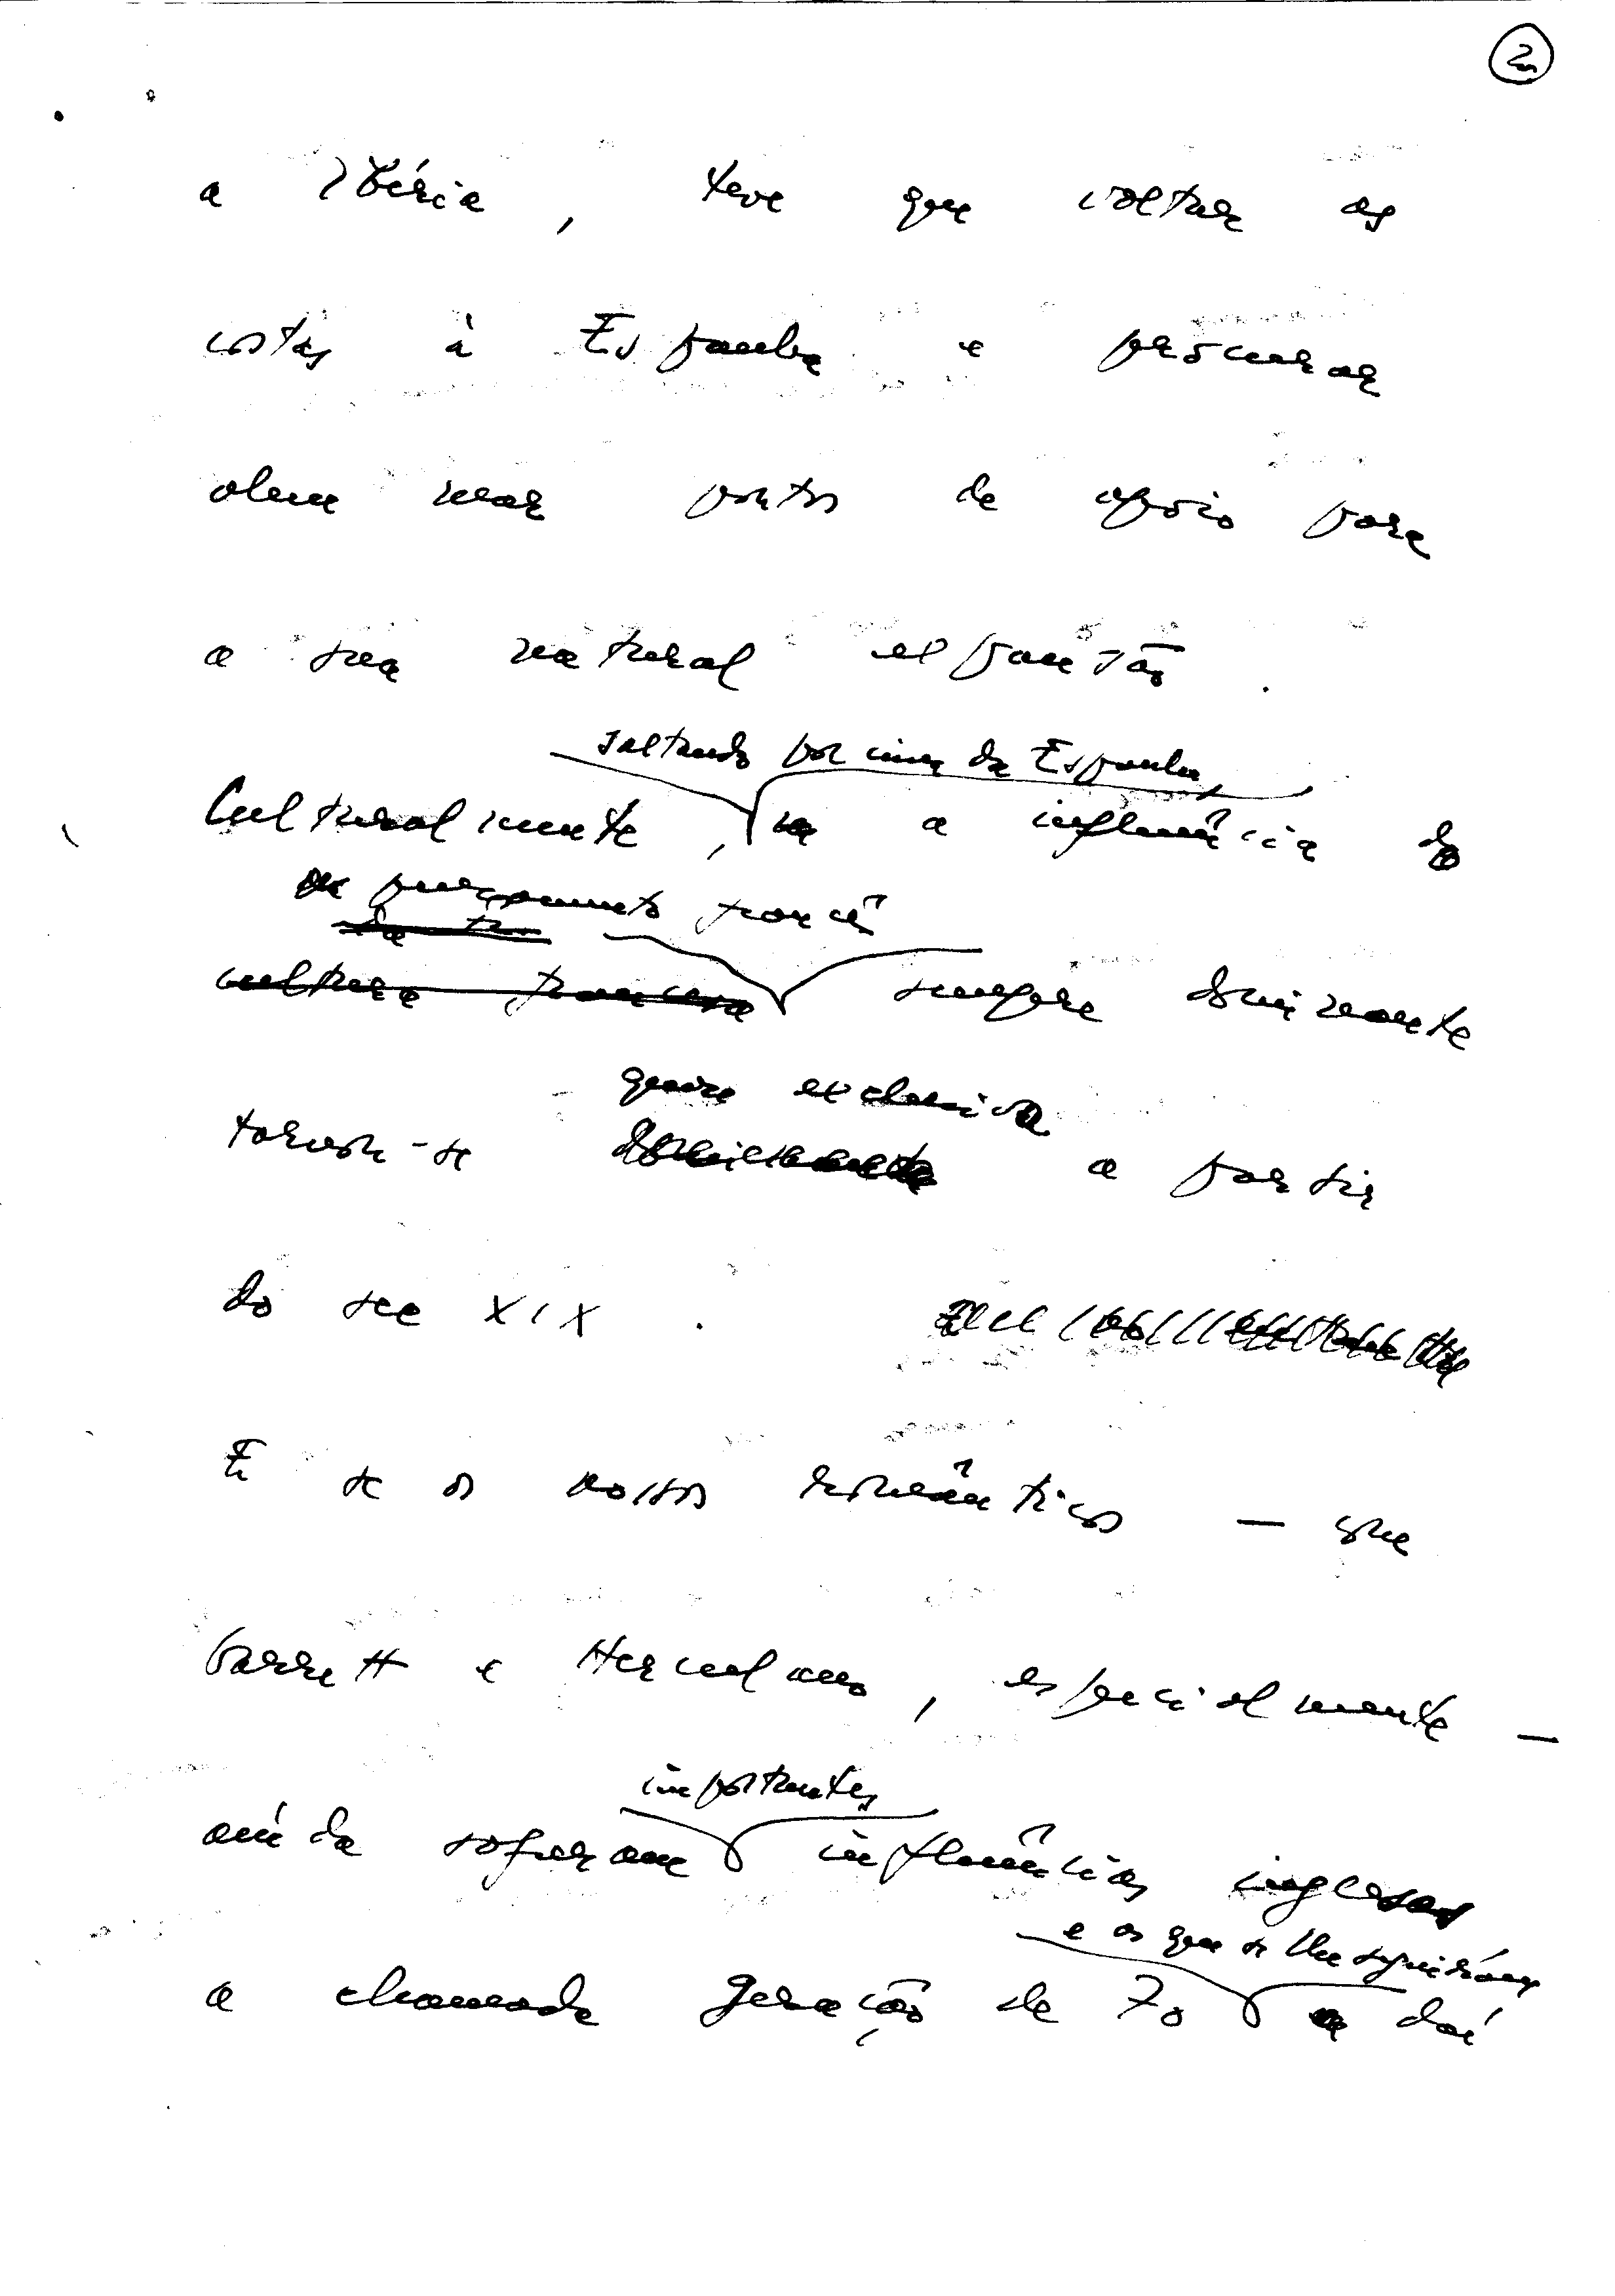 2
a Ibéria, teve que voltar as
costas à Espanha e procurar
além mar pontos de apoio para
a sua natural expansão.
saltando por cima da Espanha,
Culturalmente, a influência do
pensamento francês
cultura francesa sempre dominante
quase exclusiva
tornou-se dominante a partir
do sec XIX.
E se os nossos românticos — que
Garrett e Herculano, especialmente —
ainda sofreram influências inglesas
importantes
e os que se lhe seguiram
a chamada geração de 70 daí